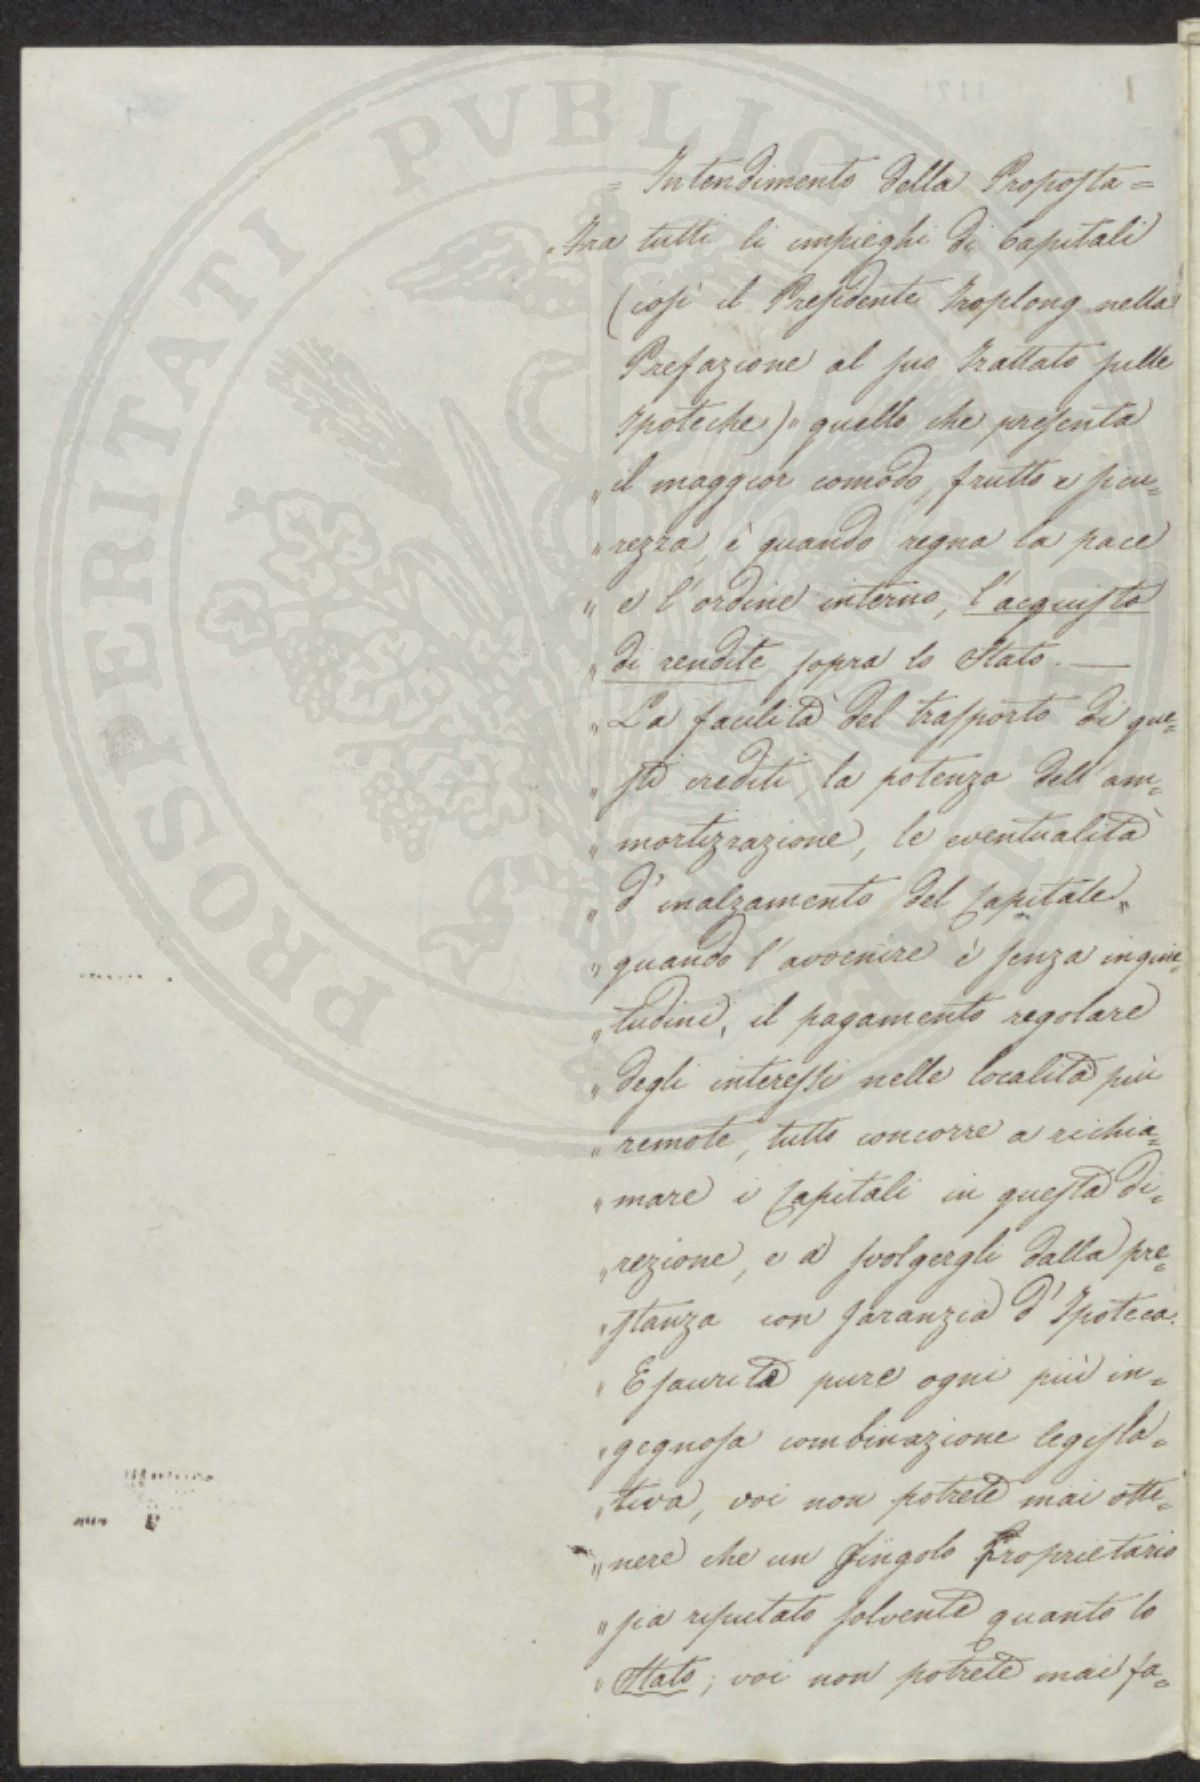 = Intendimento della Proposta =
"Fra tutti li impieghi di Capitali
(così il Presidente Troplong nella
Prefazione al suo Trattato sulle
Ipoteche) " quello che presenta
" il maggior comodo, frutto e sicu=
" rezza, è quando regna la pace
" e l'ordine interno, l'acquisto
" di rendite sopra lo Stato. —
" La facilità del trasporto di que=
" sti crediti, la potenza dell'am=
" mortizzazione, le eventualità
" d'inalzamento del Capitale,
" quando l'avvenire è senza inquie=
" tudini, il pagamento regolare
" degli interessi nelle località più
" remote, tutto concorre a richia=
" mare i Capitali in questa di=
" rezione, e a svolgergli dalla pre=
" stanza con garanzia d'Ipoteca.
" Esaurita pure ogni più in=
" gegnosa combinazione legisla=
" tiva, voi non potrete mai otte=
" nere che un singolo Proprietario
" sia reputato solvente quanto lo
" Stato; voi non potrete mai fa=
PROSPERITATI PVBLICAE